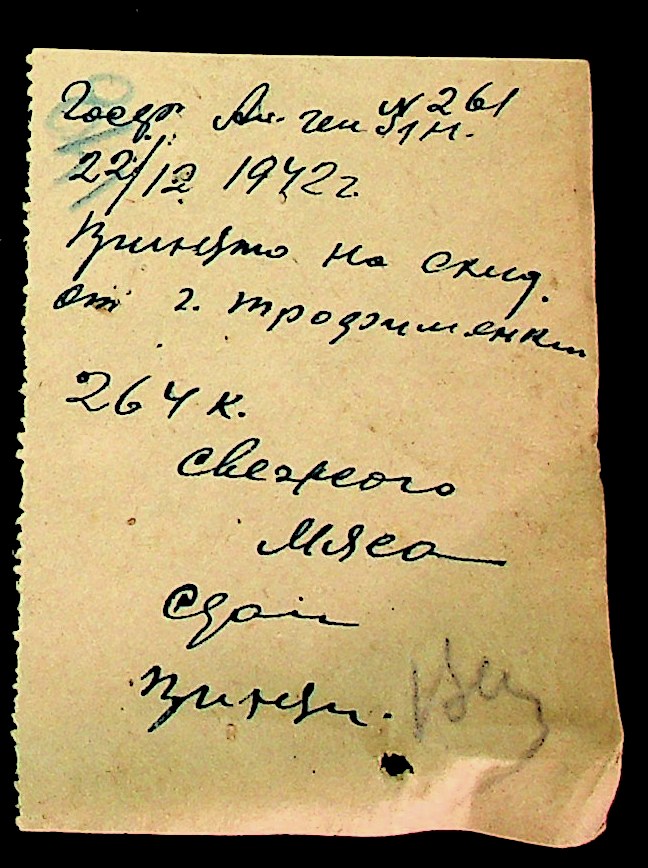 № 261
22/12 1942 г.
Принято на склад.
от г. Трофименк
264 к.
свежого
мяса
Сдал
Принял.